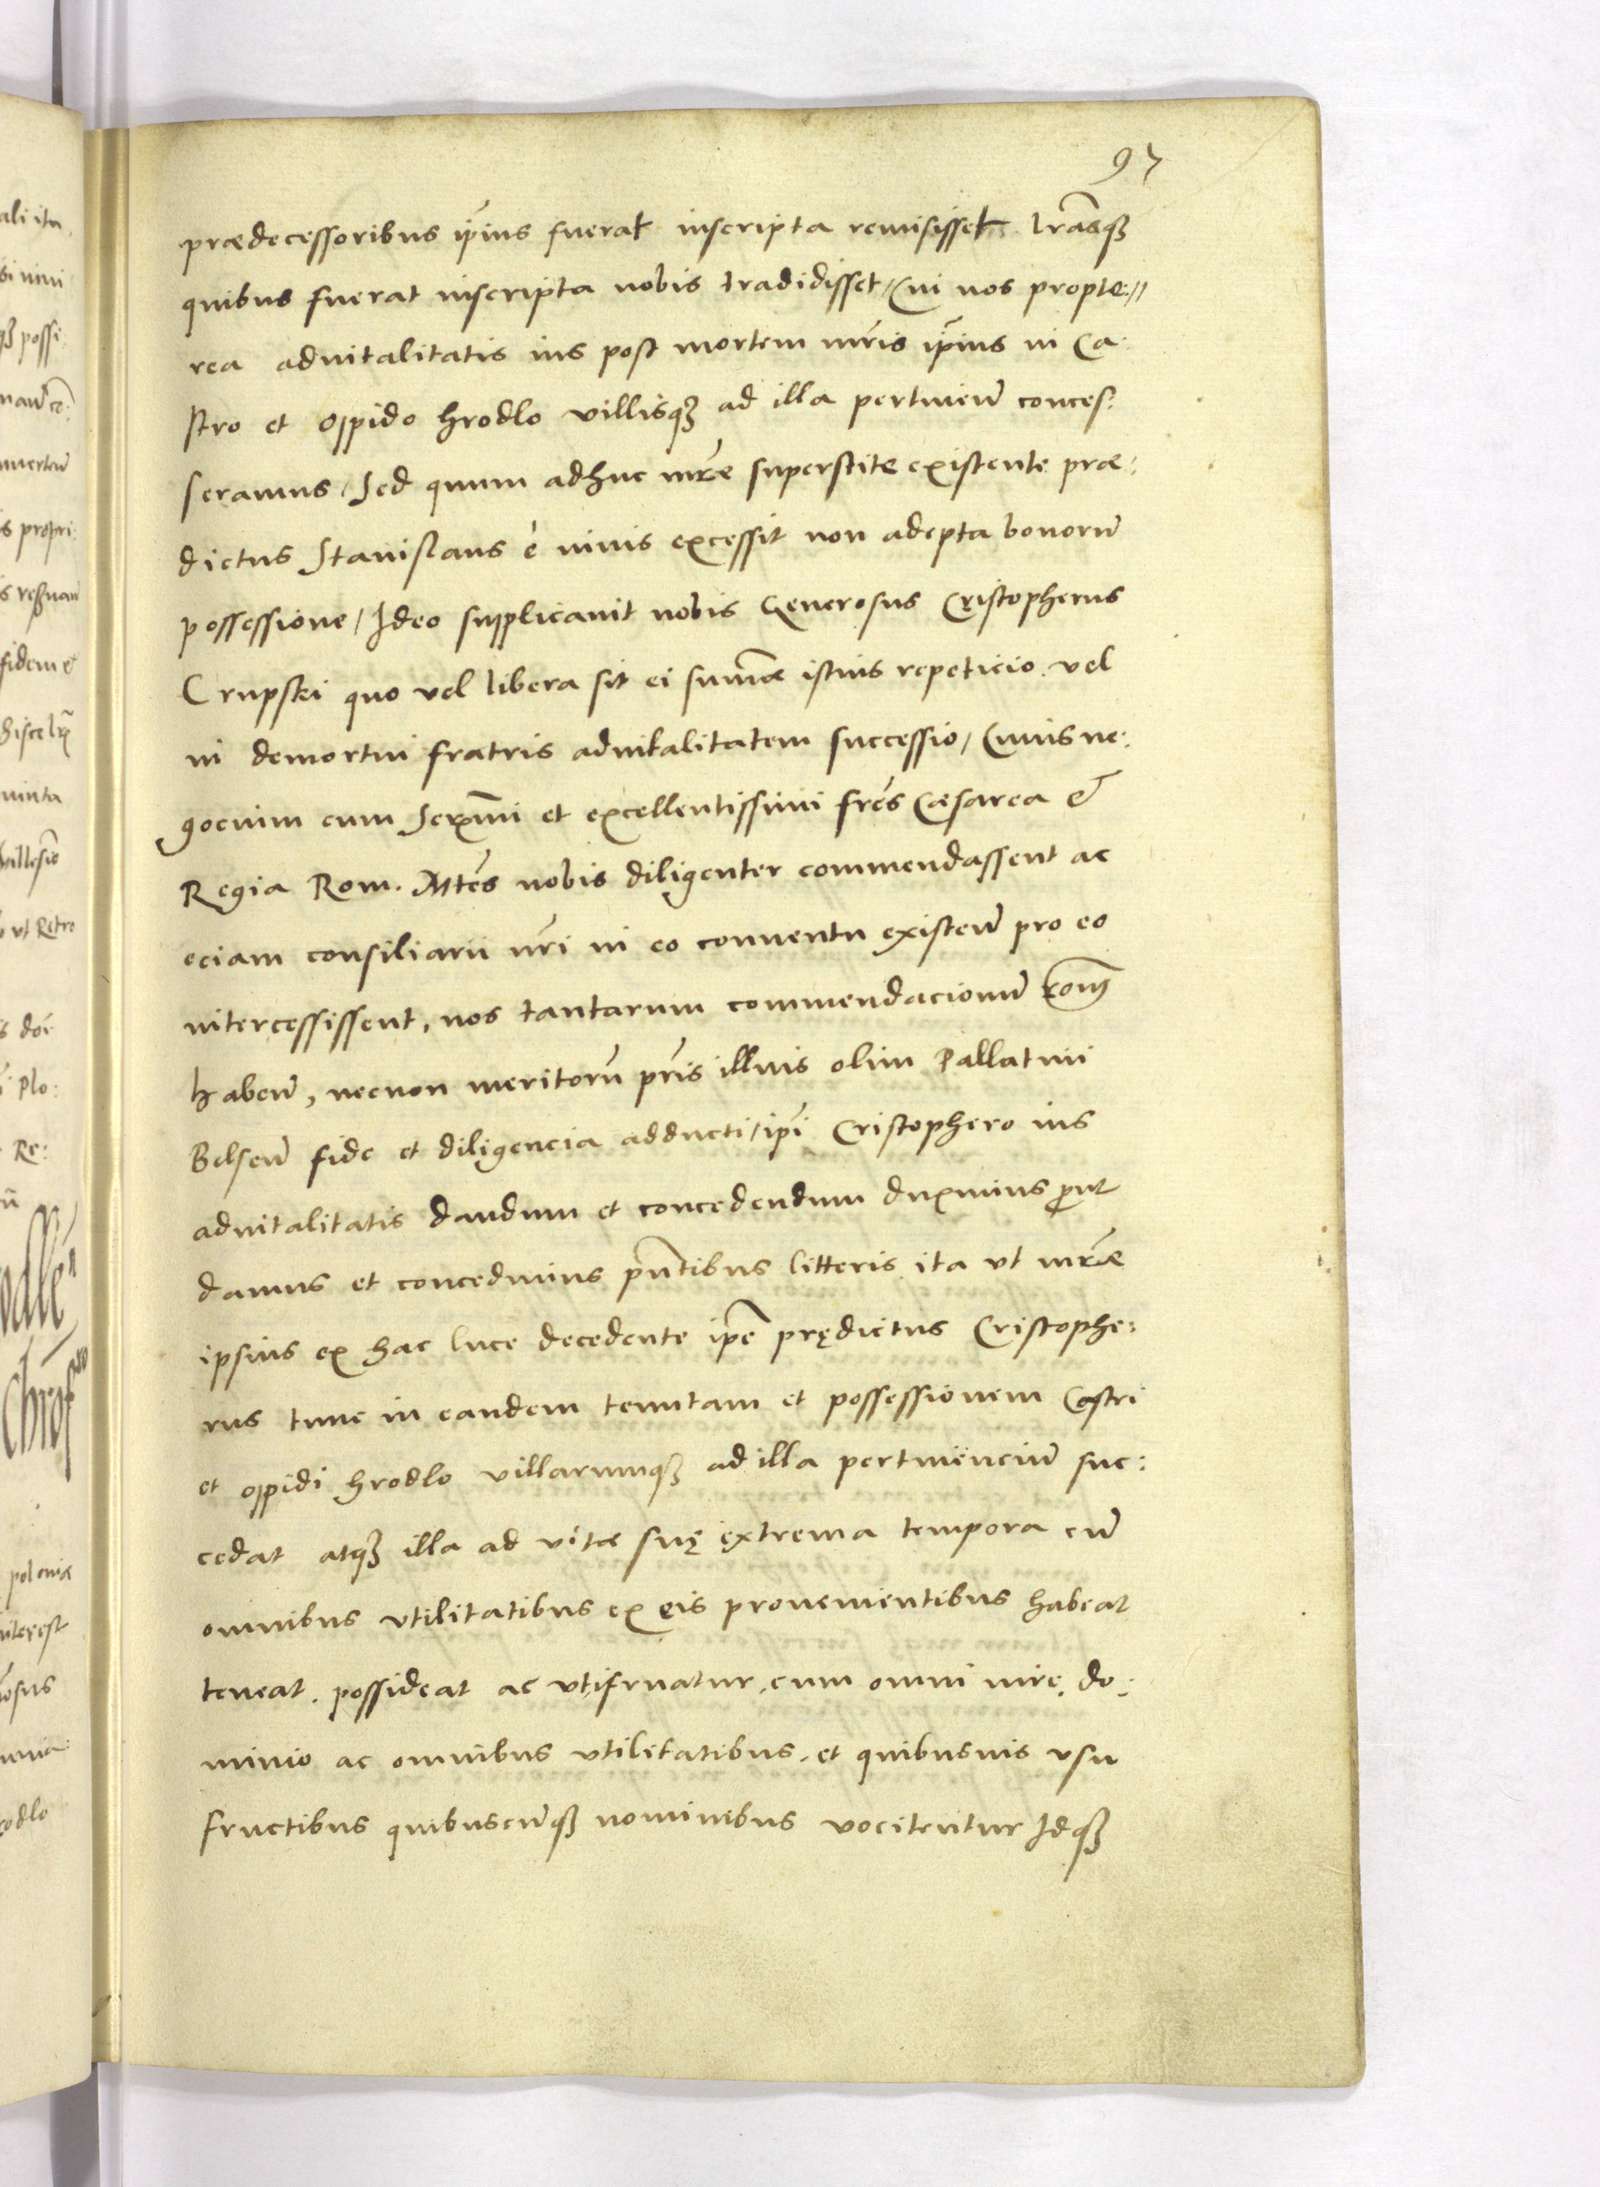 97
prædecessoribus ip̃ius fuerat inscripta remisisset lr̃asq̃ꝫ
quibus fuerat inscripta nobis tradidisset, Cui nos propte:
rea aduitalitatis ius post mortem mr̃is ip̃ius in Ca
stro et oppido hrodlo villisqꝫ ad illa pertinen̄ conces:
seramus, Sed quum adhuc mr̃e superstite existente præ:
dictus Stanislaus è viuis excessit non adepta bonorū
possessione, Ideo supplicauit nobis Generosus Cristopherus
Crupski quo vel libera sit ei sum̄æ istius repeticio vel
in demortui fratris aduitalitatem successio, Cuius ne:
gocium cum Serm̄i et excellentissimi fr̃es Cæsarea &
Regia Rom. Mtẽs nobis diligenter commendassent ac
eciam consiliarii nr̃i in eo conuentu existen̄ pro eo
intercessissent, nos tantarum commendacionū rõnẽ
haben̄, necnon meritorū pr̃is illius olim Pallatini
Belsen̄ fide et diligencia adducti, ip̃i Cristophero ius
aduitalitatis dandum et concedendum duximus put
damus et concedimus pñtibus litteris ita vt mr̃e
ipsius ex hac luce decedente ip̃e prędictus Cristophe:
rus tunc in eandem tenutam et possessionem Castri
et oppidi hrodlo villarumqꝫ ad illa pertinenciū suc:
cedat atqꝫ illa ad vitæ suę extrema tempora cū
omnibus vtilitatibus ex eis prouenientibus habeat
teneat. possideat ac vtifruatur, cum omni iure, do:
minio ac omnibus vtilitatibus, et quibusuis vsu
fructibus quibuscūqꝫ nominibus vocitentur Idqꝫ